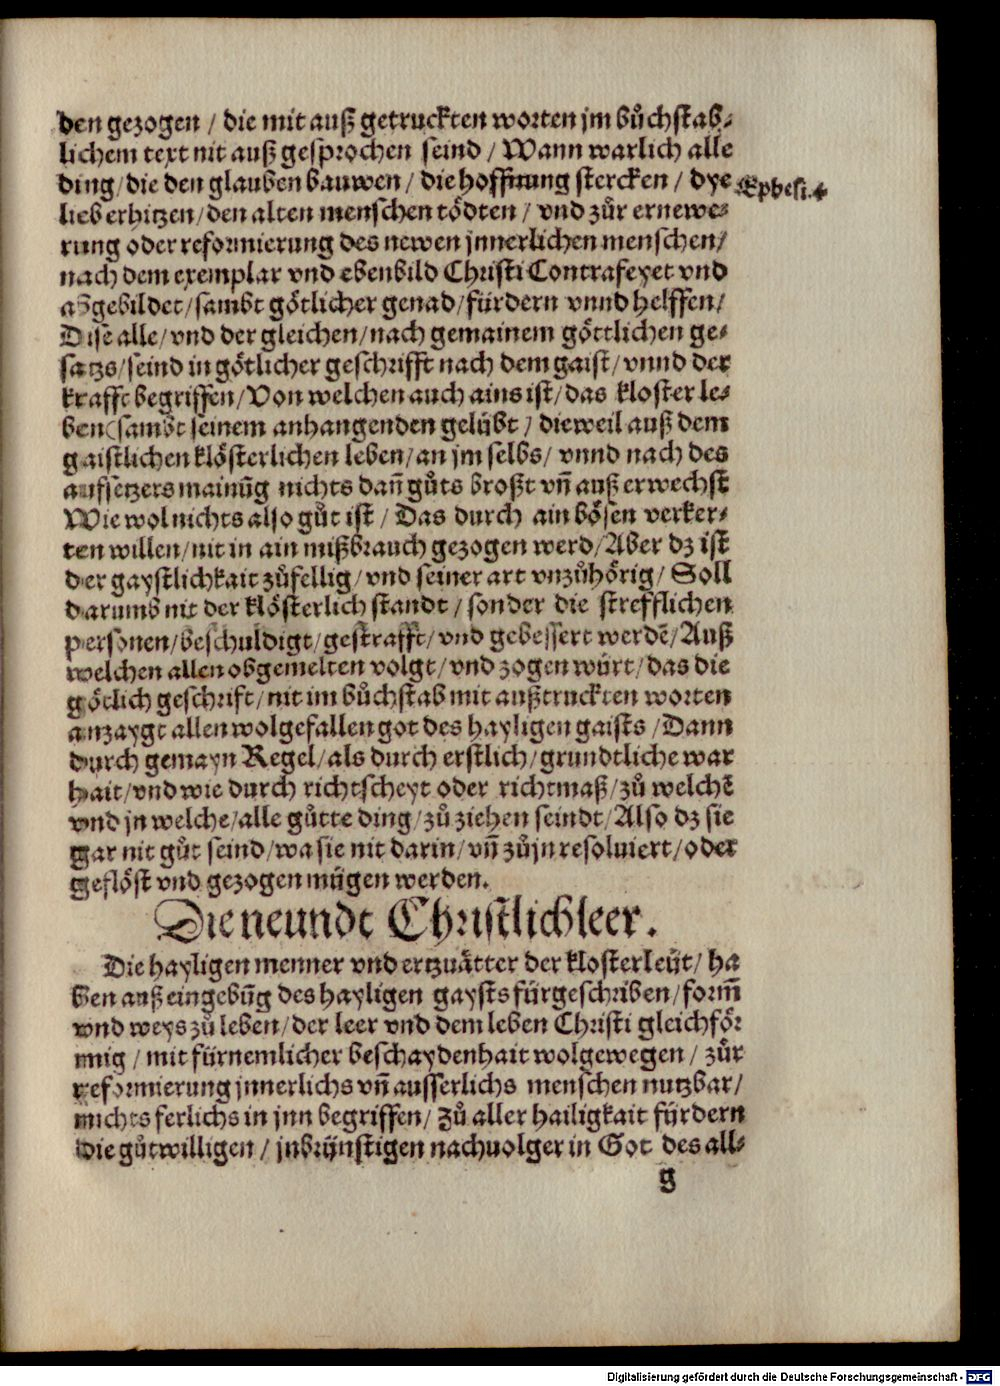 den gezogen / die mit auß getruckten worten jm bůchstab⸗
lichem text nit auß gesprochen seind / Wann warlich alle
ding / die den glauben bauwen / die hoffnung stercken / dye
Ephesi. 4
lieb erhitzen / den alten menschen tödten / vnd zůr ernewe⸗
rung oder reformierung des newen jnnerlichen menschen /
nach dem exemplar vnd ebenbild Christi Contrafeyet vnd
abgebildet / sambt götlicher genad / fürdern vnnd helffen /
Dise alle / vnd der gleichen / nach gemainem göttlichen ge⸗
satzs / seind in götlicher geschrifft nach dem gaist / vnnd der
krafft begriffen / Von welchen auch ains ist / das kloster le⸗
ben (sambt seinem anhangenden gelübt / dieweil auß dem
gaistlichen klösterlichen leben / an jm selbs / vnnd nach des
aufsetzers mainūg nichts dañ gůts broßt vñ auß erwechst
Wie wol nichts also gůt ist / Das durch ain bösen verker⸗
ten willen / nit in ain mißbrauch gezogen werd / Aber dz ist
der gaystlichkait zůfellig / vnd seiner art vnzůhörig / Soll
darumb nit der klösterlich standt / sonder die strefflichen
personen / beschuldigt / gestrafft / vnd gebessert werdē / Auß
welchen allen obgemelten volgt / vnd zogen würt / das die
götlich geschrift / nit im bůchstab mit außtruckten worten
anzaygt allen wolgefallen got des hayligen gaists / Dann
durch gemayn Regel / als durch erstlich / grundtliche war
hait / vnd wie durch richtscheyt oder richtmaß / zů welchē
vnd jn welche / alle gůtte ding / zů ziehen seindt / Also dz sie
gar nit gůt seind / wa sie nit darin / vñ zů jn resoluiert / oder
geflöst vnd gezogen mügen werden.
Die neundt Christlich leer.
Die hayligen menner vnd ertzuåtter der klosterleüt / ha
ben auß eingebūg des hayligen gaysts fürgeschriben / form̄
vnd weys zů leben / der leer vnd dem leben Christi gleichför⸗
mig / mit fürnemlicher beschaydenhait wolgewegen / zůr
reformierung jnnerlichs vñ ausserlichs menschen nutzbar /
nichts ferlichs in jnn begriffen / Zů aller hailigkait fürdern
die gůtwilligen / jnbrÿnstigen nachuolger in Got des all⸗
g
Digitalisierung gefördert durch die Deutsche Forschungsgemeinschaft - DFG